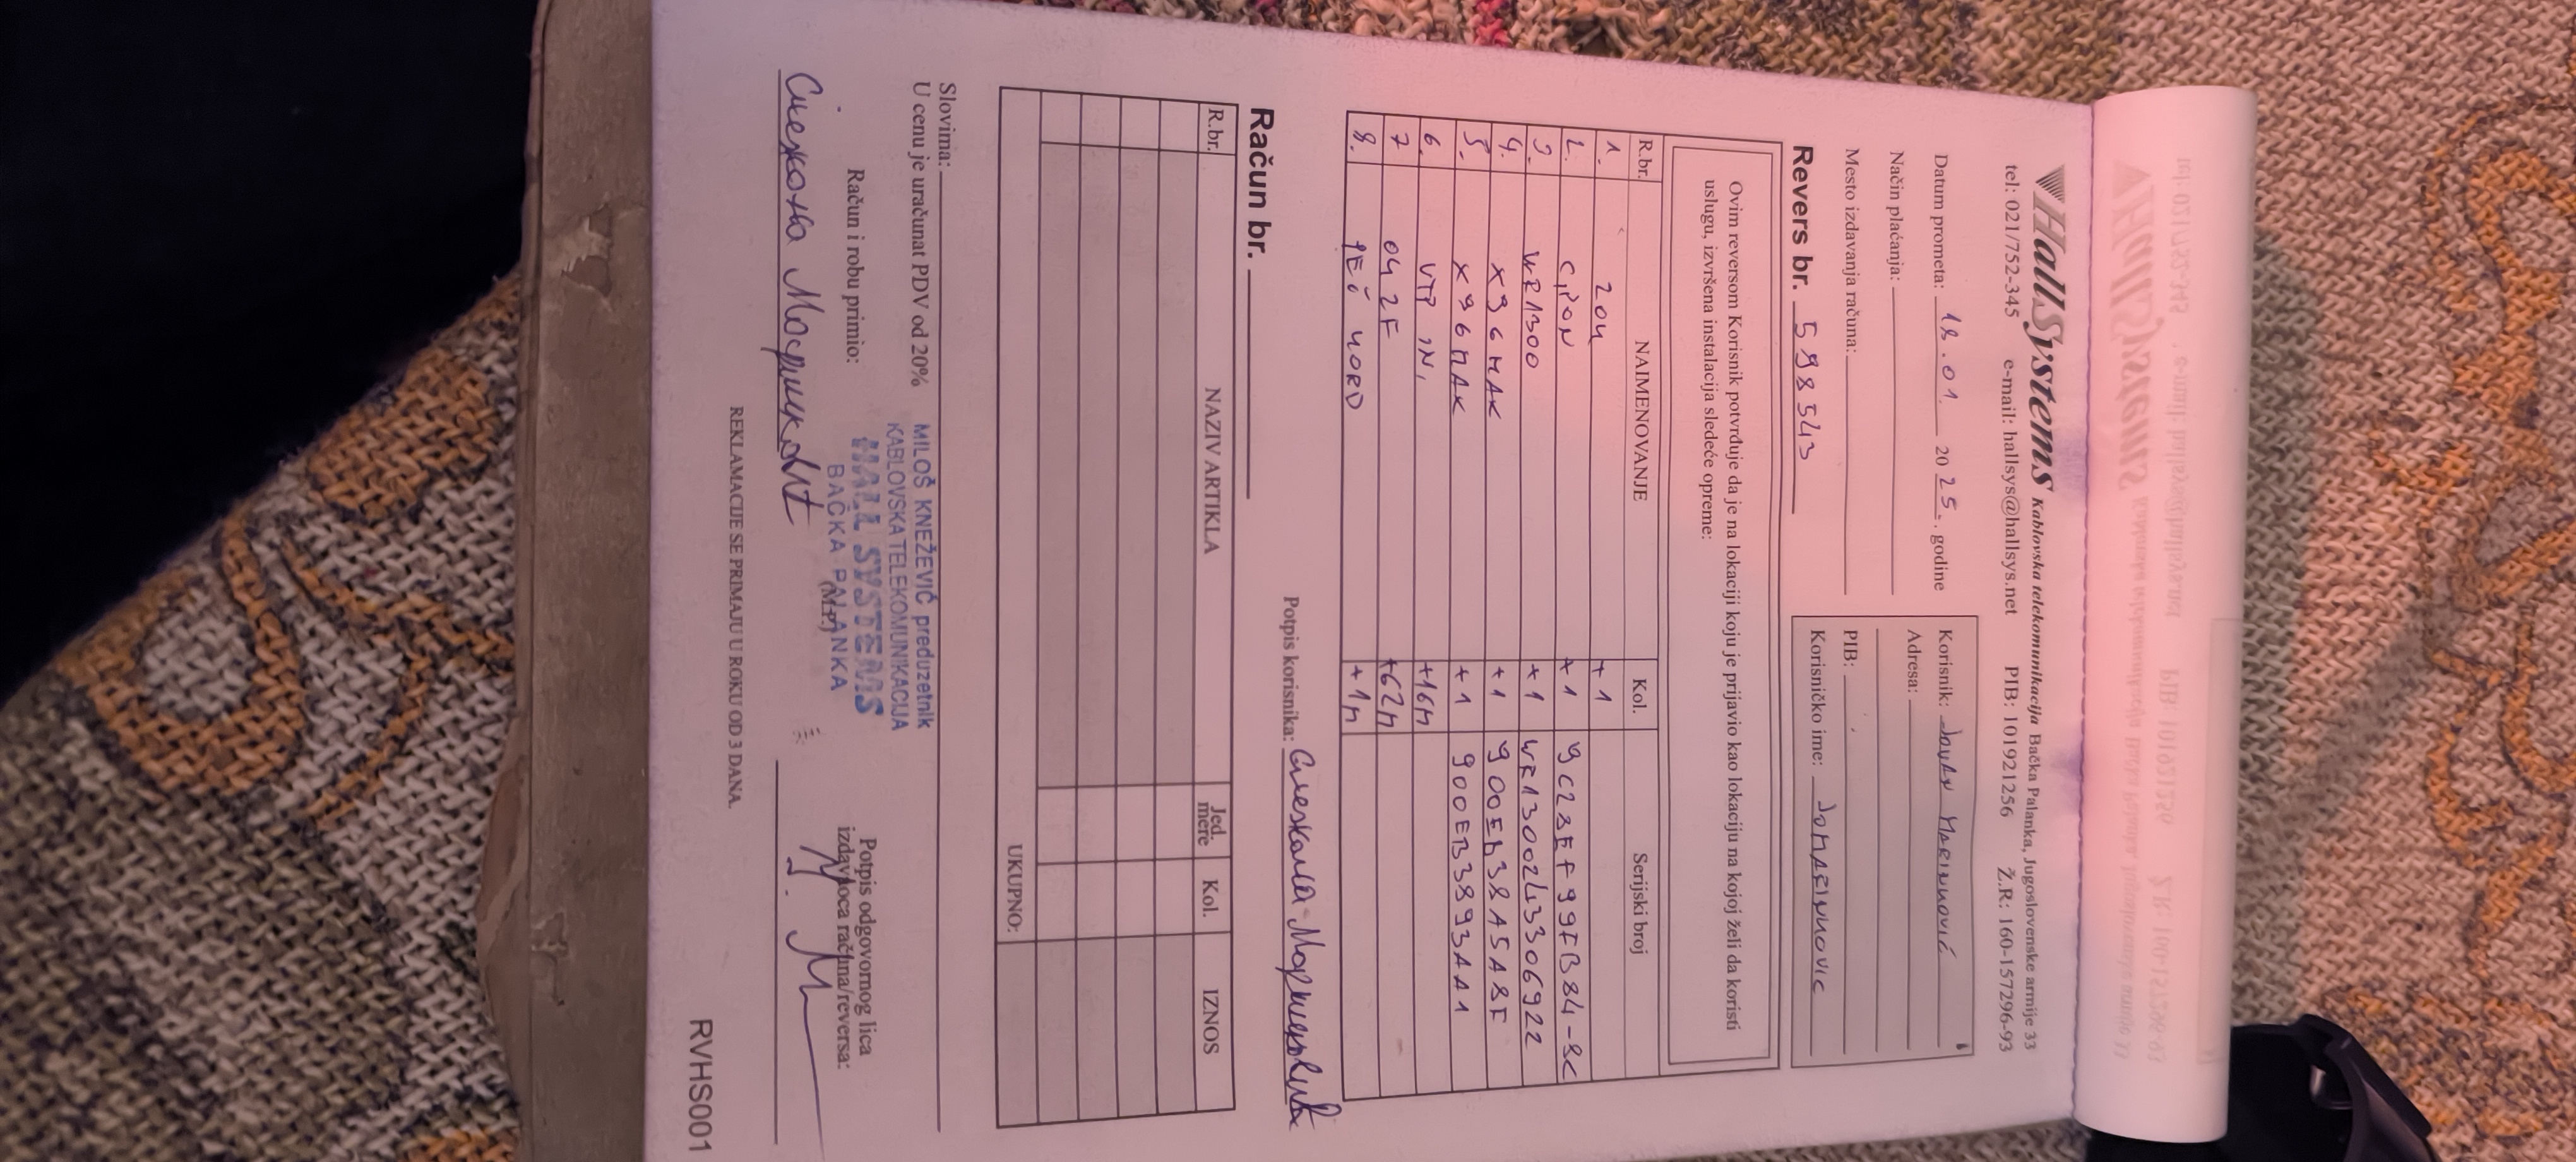 HallSystems Kablovska telekomunikacija Bačka Palanka, Jugoslovenske armije 33
tel: 021/752-345 e-mail: hallsys@hallsys.net PIB: 101921256 Ž.R: 160-157296-93
Datum prometa: 18.01. 2025. godine
Način plaćanja:
Mesto izdavanja računa:
Korisnik: Jovan Marinković
Adresa:
PIB:
Korisničko ime: JOMARINKOVIC
Revers br. 598543
Ovim reversom Korisnik potvrđuje da je na lokaciji koju je prijavio kao lokaciju na kojoj želi da koristi
uslugu, izvršena instalacija sledeće opreme:
R.br. NAIMENOVANJE Kol. Serijski broj
1. 204 +1
2. GPON +1 9C28EF99FB84-8C
3. WR1300 +1 WR1300243306922
4. X96MAX +1 900EB38A5A8F
5. X96MAX +1 900EB3893AA1
6. UTP IN. +16M
7 042F +62M
8. PEČ KORD +1M
Potpis korisnika: Снежана Маринковић
Račun br.
R.br. NAZIV ARTIKLA Jed. mere Kol. IZNOS
UKUPNO:
Slovima:
U cenu je uračunat PDV od 20%
MILOŠ KNEŽEVIĆ preduzetnik
KABLOVSKA TELEKOMUNIKACIJA
HALL SYSTEMS
BAČKA PALANKA
Račun i robu primio:
(M.P.)
Potpis odgovornog lica
izdavaoca računa/reversa:
Снежана Маринковић
REKLAMACIJE SE PRIMAJU U ROKU OD 3 DANA.
RVHS001